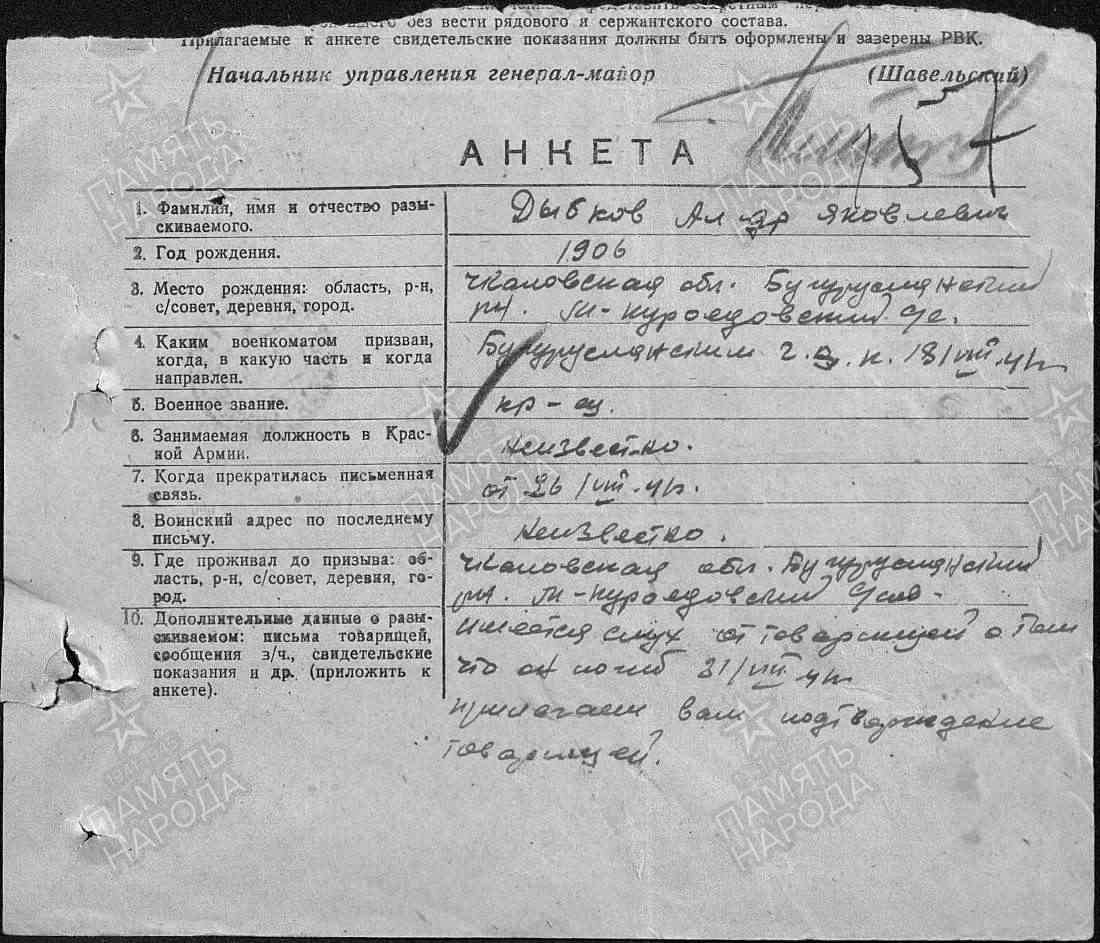 без вести рядового и сержантского состава.
Прилагаемые к анкете свидетельские показания должны быть оформлены и зазерены РВК.
Начальник управления генерал-майор (Шавельский)
АНКЕТА
1. Фамилия, имя и отчество разы-
скиваемого.
Дыбков Ал-др Яковлевич
2. Год рождения.
1906
3. Место рождения: область, р-н,
с/совет, деревня, город.
Чкаловская обл. Бугурусланский
рн. М-куроедовский с/с.
4. Каким военкоматом призван,
когда, в какую часть и когда
направлен.
Бугурусланским г.в.к. 18/VIII-41г.
5. Военное звание.
кр-ец.
6. Занимаемая должность в Крас-
ной Армии.
Неизвестно.
7. Когда прекратилась письменная
связь.
от 26/VIII-41г.
8. Воинский адрес по последнему
письму.
Неизвестно.
9. Где проживал до призыва: об-
ласть, р-н, с/совет, деревня, го-
род.
Чкаловская обл. Бугурусланский
рн. М-куроедовский
10. Дополнительные данные о разы-
скиваемом: письма товарищей,
сообщения з/ч., свидетельские
показания и др. (приложить к
анкете).
имеется слух от товарищей о том
что он погиб 31/VIII 41г.
прилагаем вам подтверждение
товарищей.
ПАМЯТЬ
НАРОДА
ПАМЯТЬ
НАРОДА
ПАМЯТЬ
НАРОДА
ПАМЯТЬ
НАРОДА
ПАМЯТЬ
НАРОДА
ПАМЯТЬ
НАРОДА